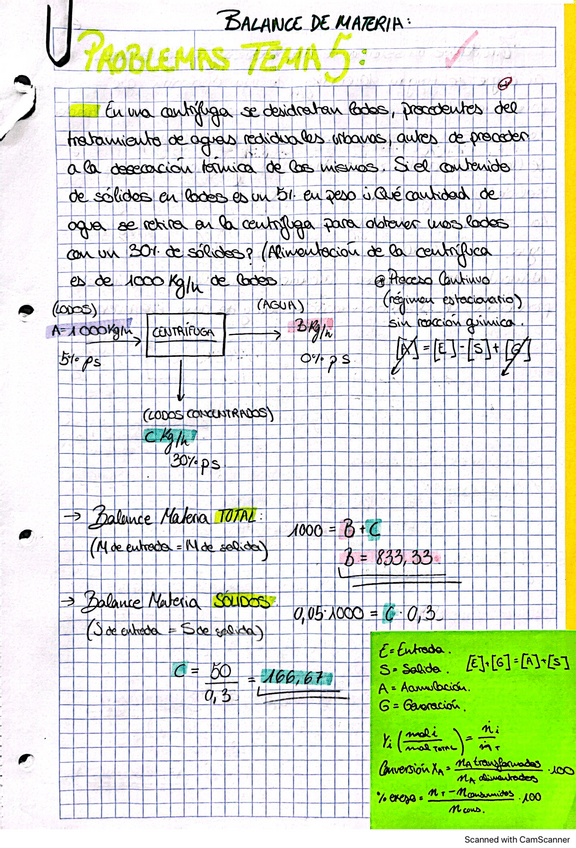 BALANCE DE MATERIA:
PROBLEMAS TEMA 5:
En una centrífuga se desidratan lodos, procedentes del
tratamiento de aguas rediduales urbanos, antes de proceder
a la desecación térmica de los mismos. Si el contenido
de sólidos en lodos es un 5% en peso ¿Qué cantidad de
agua se retira en la centrífuga para obtener unos lodos
con un 30% de sólidos? (Alimentación de la centrífuga
es de 1000 Kg/h de lodos.
Proceso Continuo
(régimen estacionario)
sin reacción química.
[A] = [E] - [S] + [G]
(LODOS)
A=1000Kg/h
5% ps
CENTRÍFUGA
(AGUA)
B Kg/h
0% ps
(LODOS CONCENTRADOS)
C Kg/h
30% ps
→ Balance Materia TOTAL:
(M de entrada = M de salida)
1000 = B + C
B = 833,33
→ Balance Materia SÓLIDOS
(S de entrada = S de salida)
0,05·1000 = C · 0,3
C = 50/0,3 = 166,67
E = Entrada.
S = Salida.
A = Acumulación.
G = Generación.
[E]+[G] = [A]+[S]
Yi (mol i / mol TOTAL) = ṅi / ṅT
Conversión XA = nA transformados / nA alimentados · 100
% exceso = nT - nconsumidos / ncons. · 100
Scanned with CamScanner